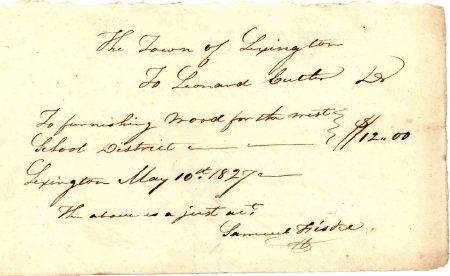 The Town of Lexington
To Leonard Cutter Dr
To furnishing wood for the west
School District $12.00
Lexington May 10th. 1827
The above is a just act.
Samuel Fiske